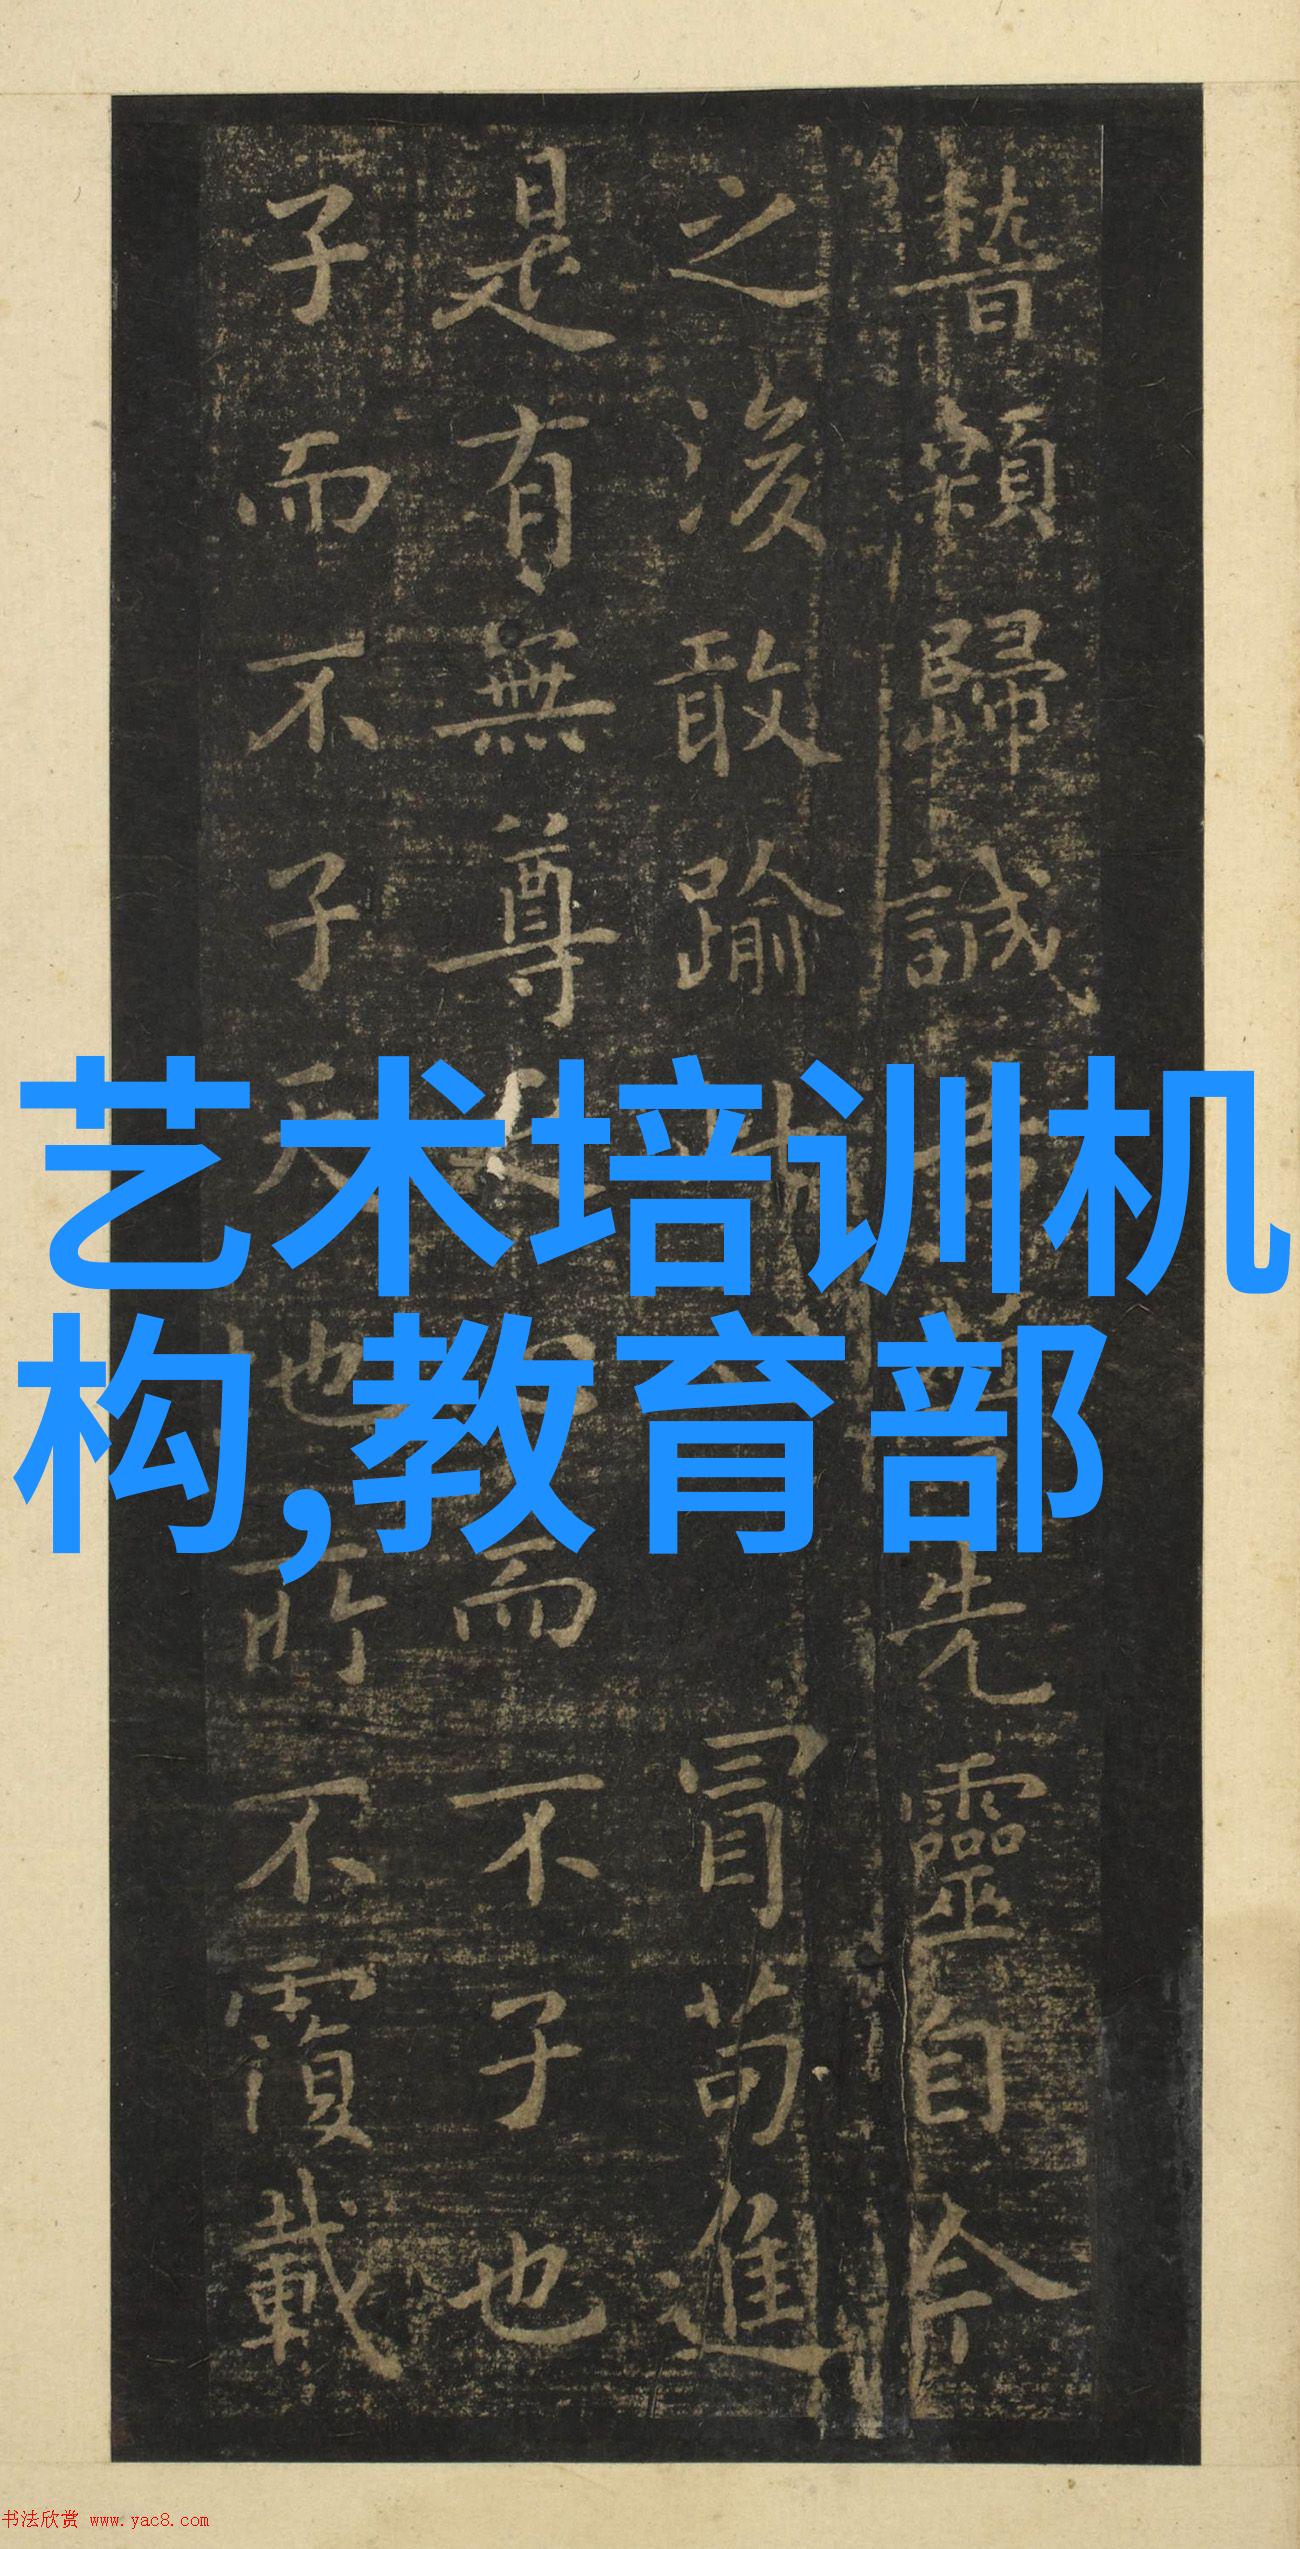 稽顙歸誠
先靈自今
之後敢踰
冒苟進
是有無尊
而不子也
子而不子天
地所不覆載
艺术培训机
构,教育部
书法欣赏 www.yac8.com